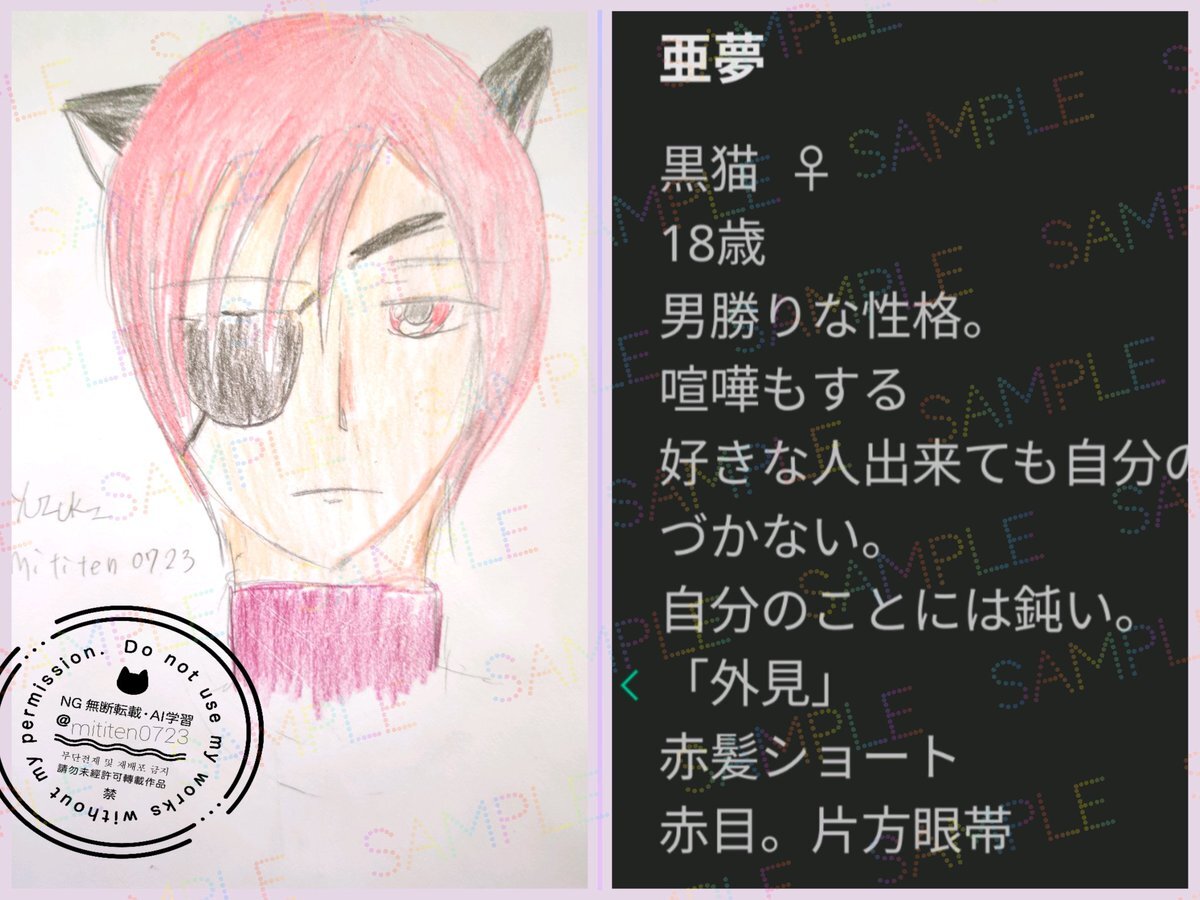 Yuzuki
mititen 0723
Do not use my works without my permission.
NG 無断転載・AI学習
@mititen0723
무단전재 및 재배포 금지
請勿未經許可轉載作品
禁
亜夢
黒猫 ♀
18歳
男勝りな性格。
喧嘩もする
好きな人出来ても自分の
づかない。
自分のことには鈍い。
「外見」
赤髪ショート
赤目。片方眼帯
SAMPLE